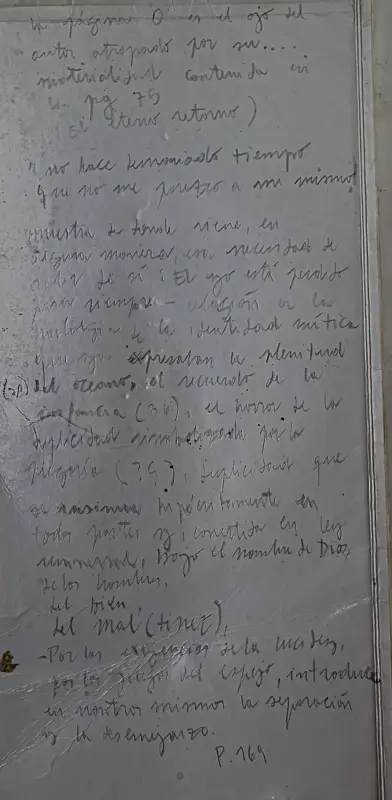 la página 0 es el ojo del
autor atrapado por su....
materialidad contenida en
la pg 75
(El eterno retorno)
"no hace demasiado tiempo
que no me parezco a mi mismo"
muestra de donde viene, en
alguna manera, esa necesidad de
salir de sí: El ojo está perdido
para siempre - relación en la
nostalgia de la identidad mítica
que expresaban la plenitud
del oceano, el recuerdo de la
infancia (36), el horror de la
duplicidad simbolizada por la
(75), duplicidad que
se hipócritamente en
todas partes y, convertida en ley
universal, bajo el nombre de Dios,
de los hombres,
del bien,
del mal (tinez),
-Por las exigencias de la lucidez,
por los juegos del espejo, introduce
en nosotros mismos la separación
y la desemejanza.
P. 169